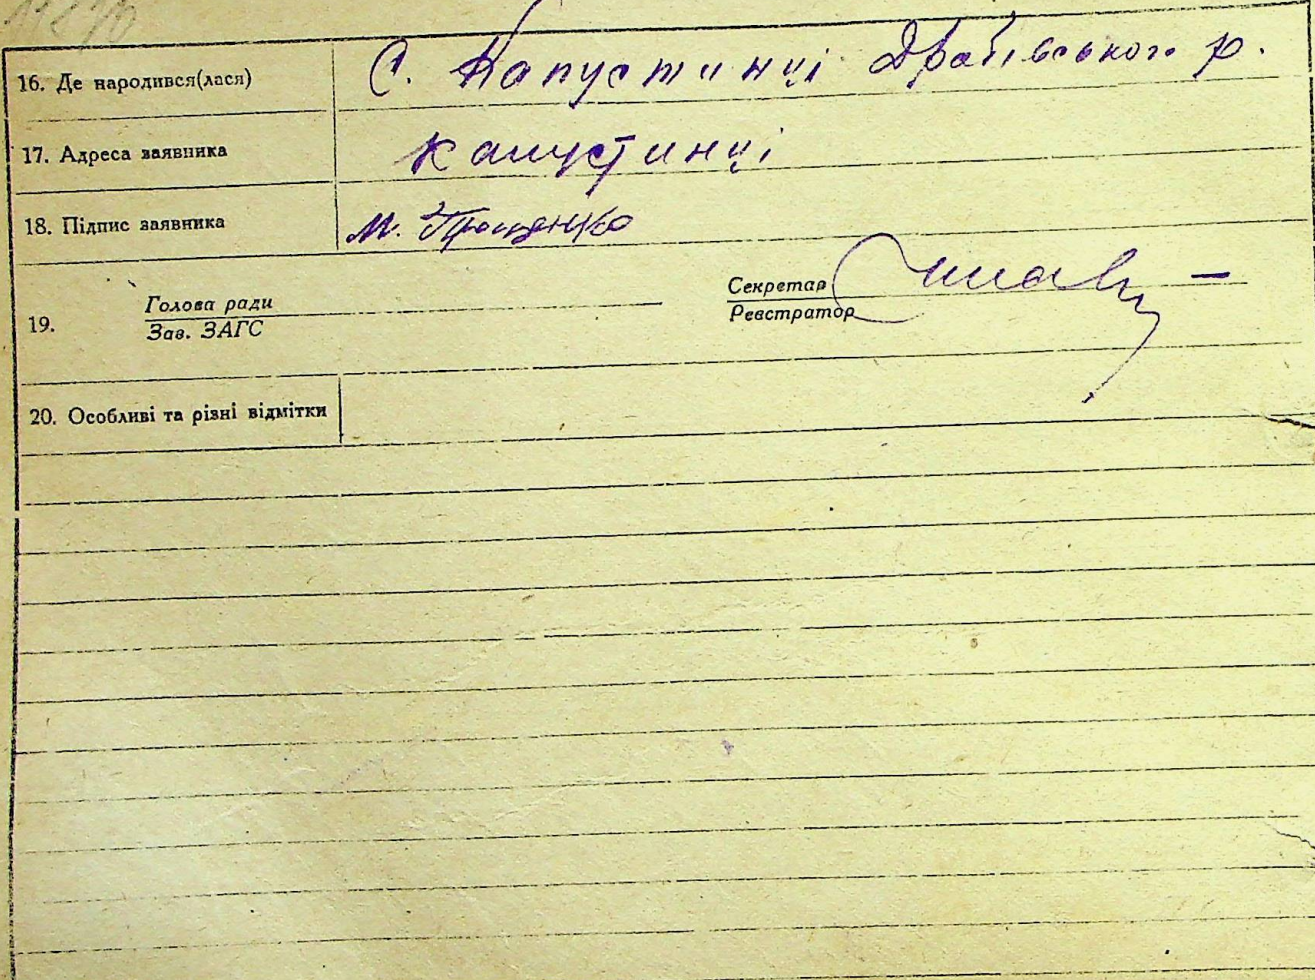 16. Де народився(лася) С. Капустинці Драбівського р.
17. Адреса заявника Капустинці
18. Підпис заявника М. Проценко
19. Голова ради Секретар
Зав. ЗАГС Реєстратор
20. Особливі та різні відмітки